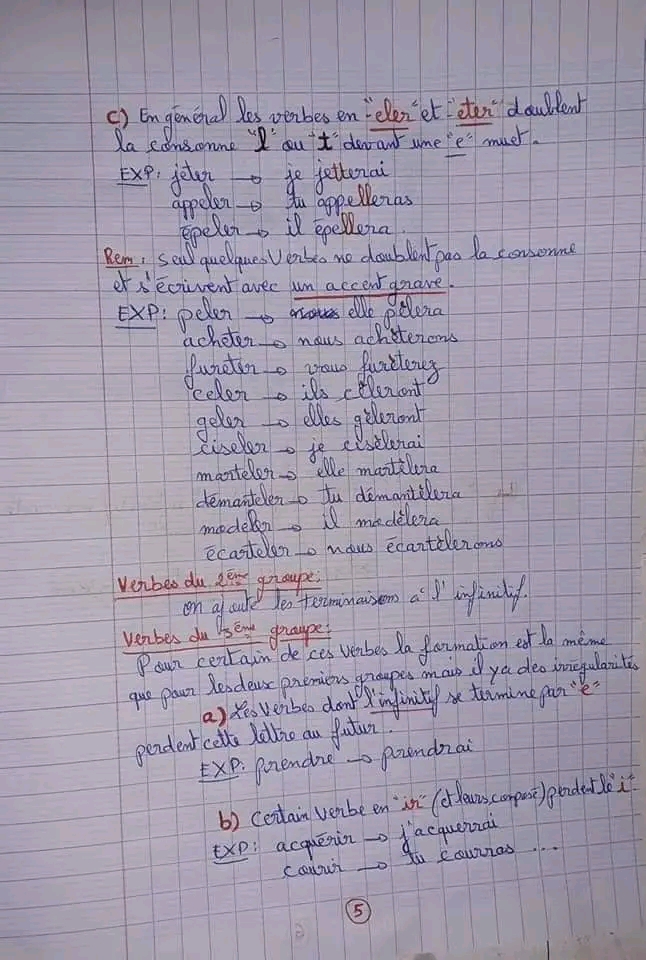 c) En général les verbes en "eler" et -"eter" doublent
la consonne "l" ou "t" devant une "e" muet.
EXP: jeter → je jetterai
appeler → tu appelleras
épeler → il épellera.
Rem: seul quelques Verbes ne doublent pas la consonne
et s'écrivent avec un accent grave.
EXP: peler → elle pèlera
acheter → nous achèterons
fureter → vous furèterez
celer → ils cèleront
geler → elles gèleront
ciseler → je cisèlerai
marteler → elle martèlera
démanteler → tu démantèlera
modeler → il modèlera
écarteler → nous écartèlerons
Verbes du 2ème groupe:
on ajoute les terminaison à l'infinitif.
Verbes du 3ème groupe:
Pour certain de ces verbes la formation est la même
que pour les deux premiers groupes mais il ya des irrégularités
a) Les verbes dont l'infinitif se termine par "e"
perdent cette lettre au futur.
EXP: prendre → prendrai
b) Certain verbe en "ir" (et leurs composé) perdent le "i"
EXP: acquérir → j'acquerrai
courir → tu courras ...
5